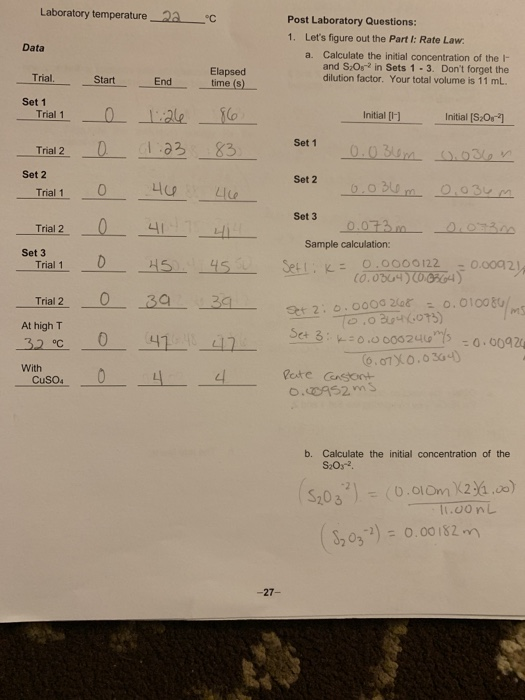 Laboratory temperature 22 °C
Data
Trial. Start End Elapsed time (s)
Set 1
Trial 1 0 1:26 86
Trial 2 0 1:23 83
Set 2
Trial 1 0 46 46
Trial 2 0 41 41
Set 3
Trial 1 0 45 45
Trial 2 0 39 39
At high T
32 °C 0 47 47
With
CuSO₄ 0 4 4
Post Laboratory Questions:
1. Let's figure out the Part I: Rate Law.
a. Calculate the initial concentration of the I-
and S₂O₈⁻² in Sets 1 - 3. Don't forget the
dilution factor. Your total volume is 11 mL.
Initial [I-] Initial [S₂O₈⁻²]
Set 1 0.036m 0.036
Set 2 0.036m 0.036 m
Set 3 0.073m
Sample calculation:
Set 1: K = 0.0000122 = 0.00921
(0.0364)(0.0364)
Set 2: 0.0000268 = 0.010086/ms
(0.0364)(.073)
Set 3: K=0.0000246 m/s = 0.0092
(0.07)(0.0364)
Rate Constant
0.00952 ms
b. Calculate the initial concentration of the
S₂O₃⁻².
(S₂O₃⁻²) = (0.010m)(2)(1.00)
11.00mL
(S₂O₃⁻²) = 0.00182m
--27--